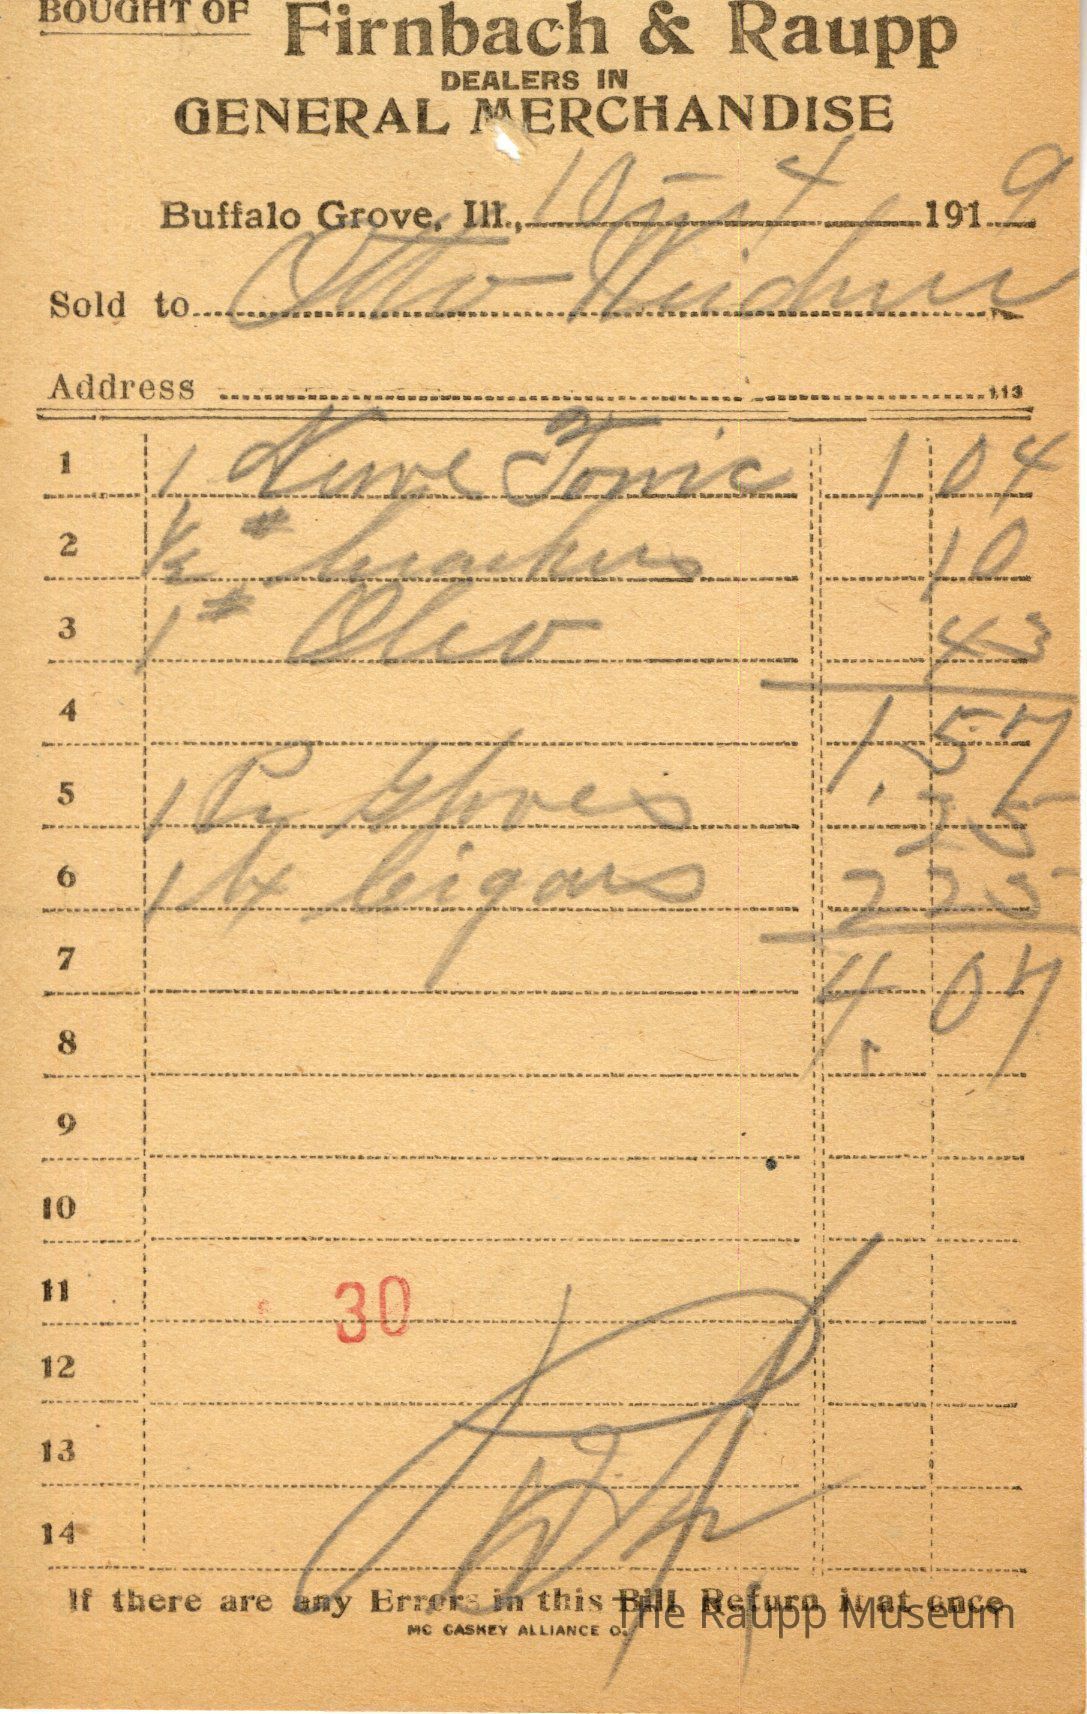 BOUGHT OF Firnbach & Raupp
DEALERS IN
GENERAL MERCHANDISE
Buffalo Grove, Ill., 10 - 4 1919
Sold to Otto Weidner
Address 113
1 1 Nerve Tonic 1 04
2 1/2 # Crackers 10
3 1 # Oleo 43
4 1.57
5 1 Pr Gloves .25
6 1 bx Cigars 2 25
7 4.07
8
9
10
11 30
12
13
14
If there are any Errors in this Bill Return it at once
MC CASKEY ALLIANCE O.
The Raupp Museum